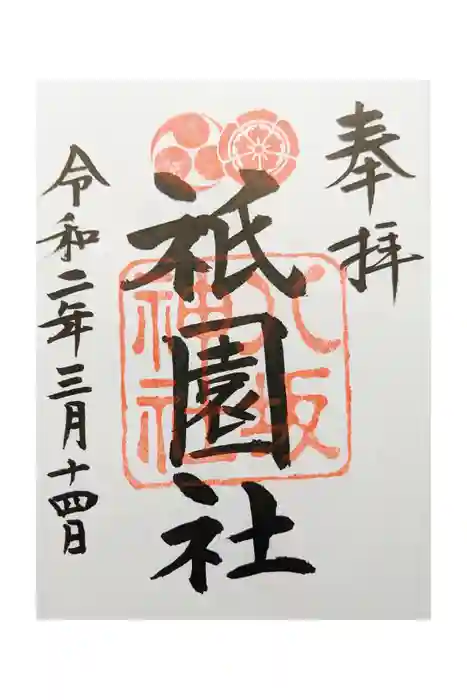 奉拝
祇園社
八坂
神社
令和二年三月十四日